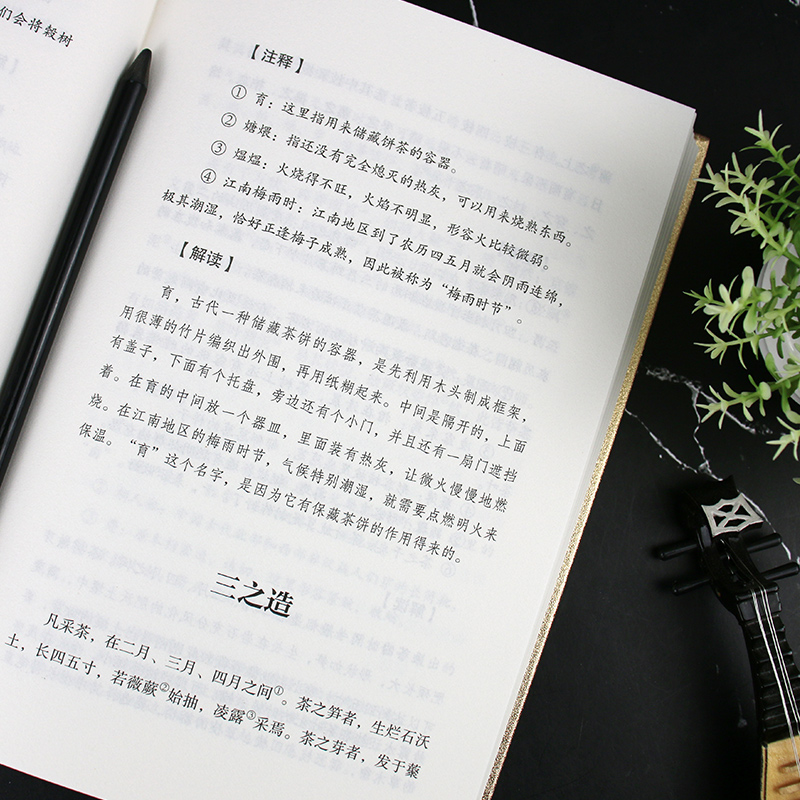 们会将榖树
【注释】
① 育：这里指用来储藏饼茶的容器。
② 煻煨：指还没有完全熄灭的热灰，可以用来烧熟东西。
③ 煴煴：火烧得不旺，火焰不明显，形容火比较微弱。
④ 江南梅雨时：江南地区到了农历四五月就会阴雨连绵，
极其潮湿，恰好正逢梅子成熟，因此被称为“梅雨时节”。
【解读】
育，古代一种储藏茶饼的容器，是先利用木头制成框架，
用很薄的竹片编织出外围，再用纸糊起来。中间是隔开的，上面
有盖子，下面有个托盘，旁边还有个小门，并且还有一扇门遮挡
着。在育的中间放一个器皿，里面装有热灰，让微火慢慢地燃
烧。在江南地区的梅雨时节，气候特别潮湿，就需要点燃明火来
保温。“育”这个名字，是因为它有保藏茶饼的作用得来的。
三之造
凡采茶，在二月、三月、四月之间①。茶之笋者，生烂石沃
土，长四五寸，若薇蕨②始抽，凌露③采焉。茶之芽者，发于藂